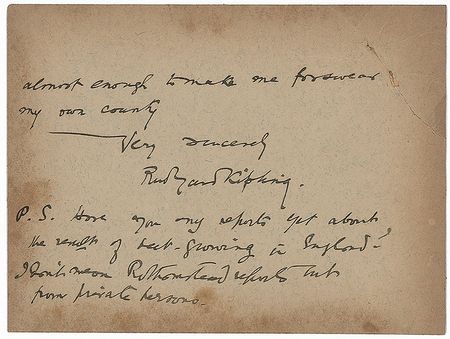 almost enough to make me forswear
my own county
Very sincerely
Rudyard Kipling.
P.S. Have you any reports yet about
the results of beet-growing in England?
I don't mean Rothamstead reports but
from private persons.